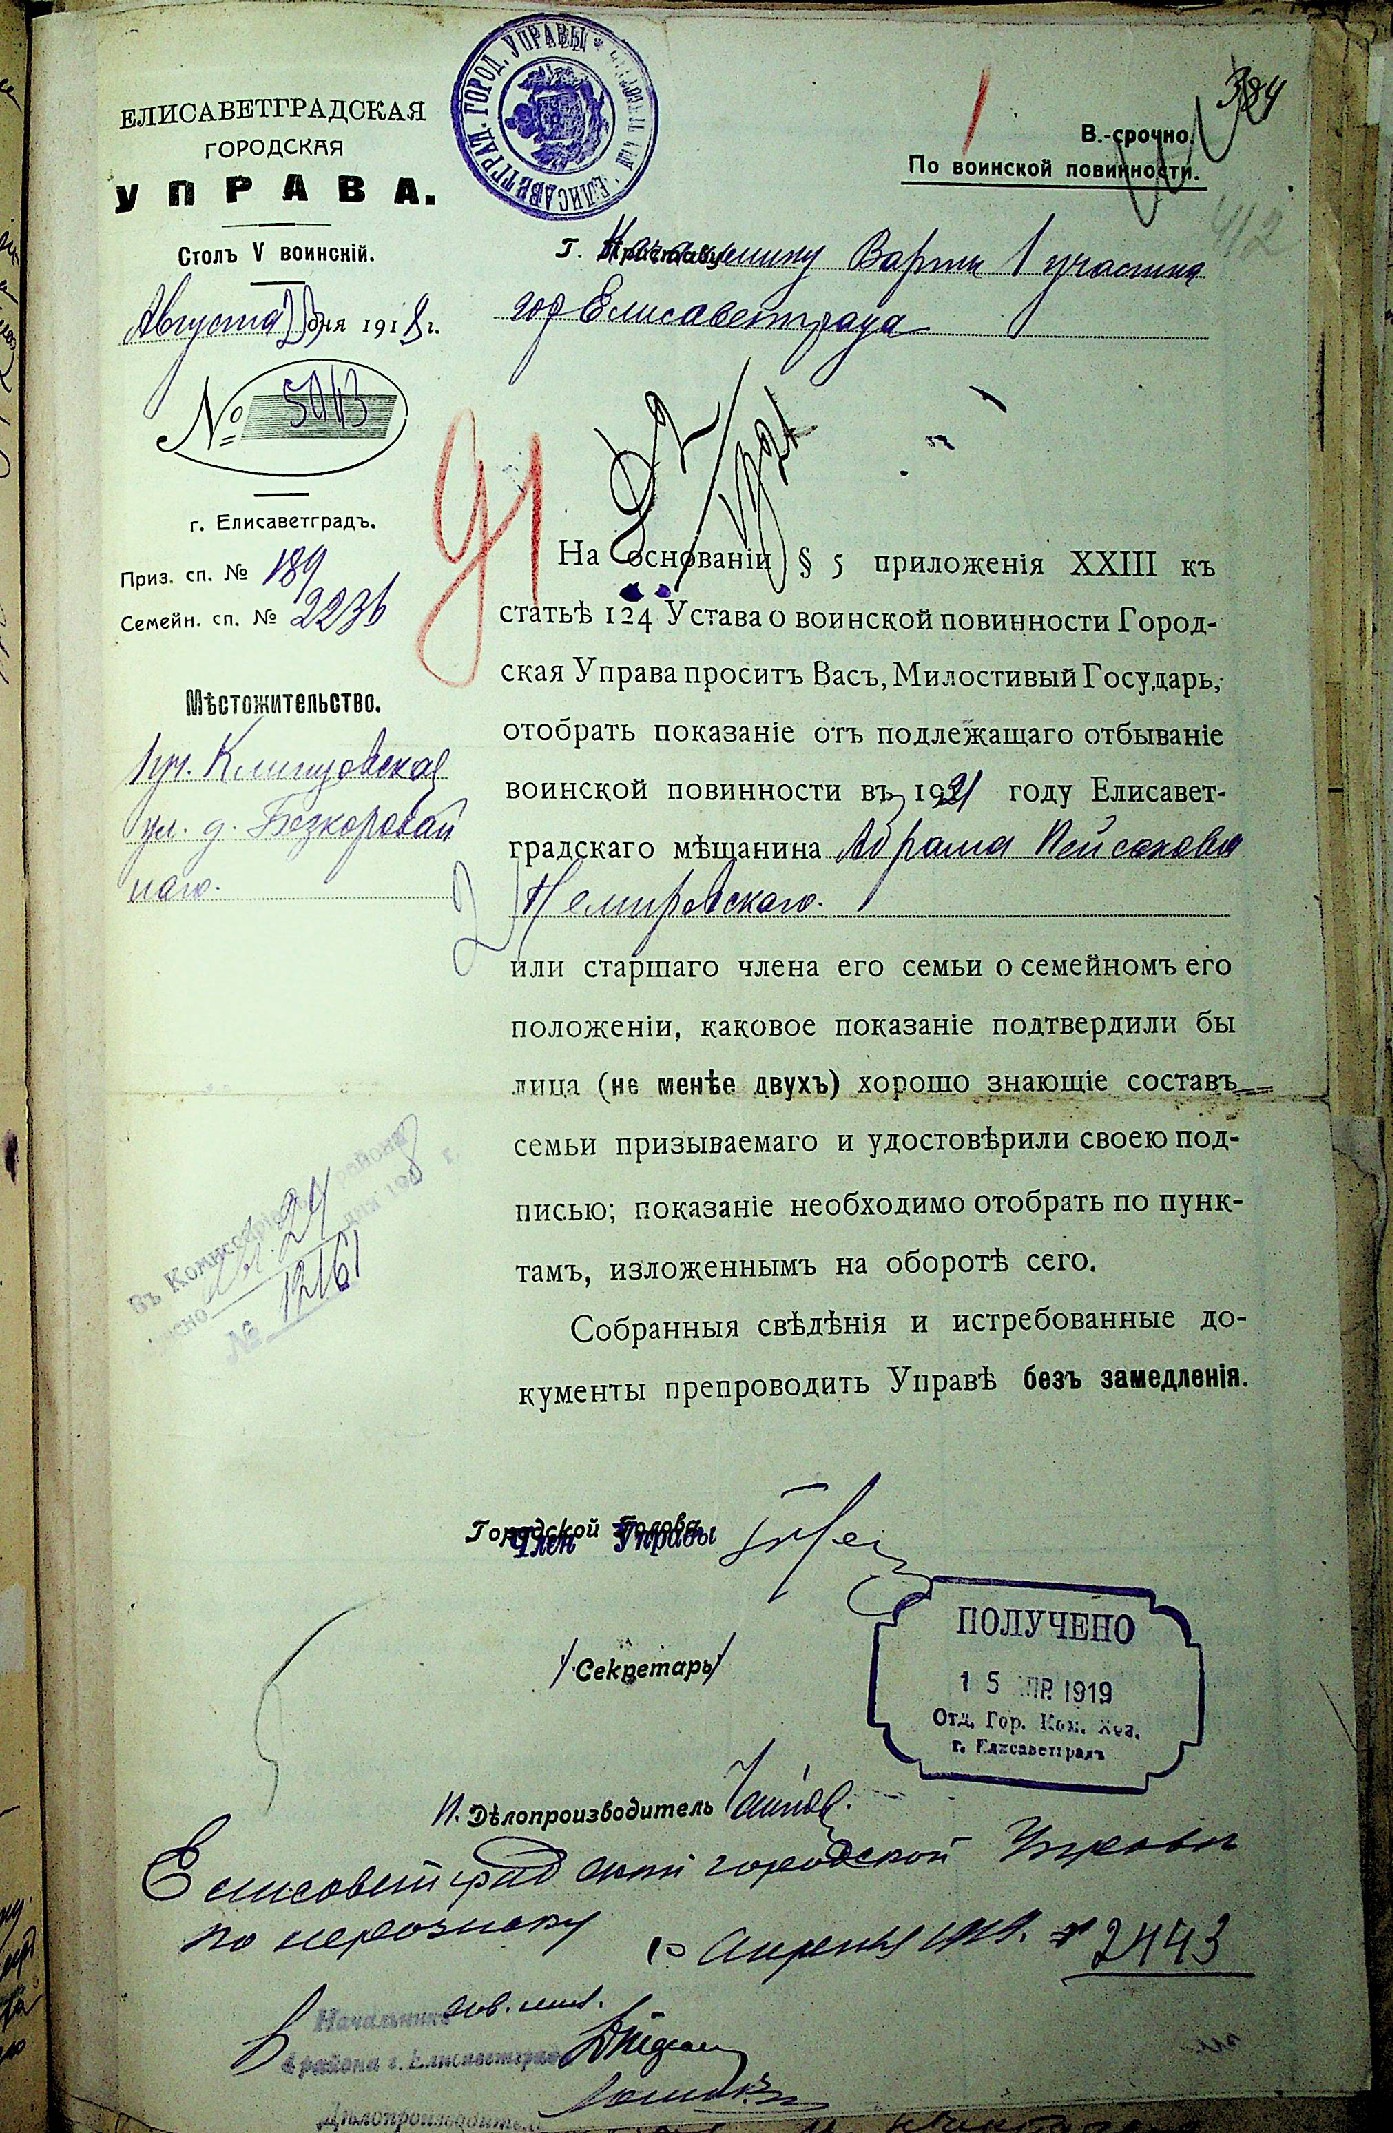 ЕЛИСАВЕТГРАДСКАЯ
ГОРОДСКАЯ
УПРАВА.
Столъ V воинскій.
Августа 29 дня 1918 г.
№ 5043
г. Елисаветградъ.
Приз. сп. № 189
Семейн. сп. № 2236
Мѣстожительство.
ул. д. Безкоровай
наго.
ЕЛИСАВЕТГРАД. ГОРОД. УПРАВЫ
384
В.-срочно.
По воинской повинности.
412
Г. Приставу Начальнику Варты 1 участка
гор Елисаветграда
91
На основаніи § 5 приложенія XXIII къ
статьѣ 124 Устава о воинской повинности Город-
ская Управа проситъ Васъ, Милостивый Государь,
отобрать показаніе отъ подлежащаго отбыванію
воинской повинности въ 1921 году Елисавет-
градскаго мѣщанина Абрама Пейсахова
Немировскаго.
или старшаго члена его семьи о семейномъ его
положеніи, каковое показаніе подтвердили бы
лица (не менѣе двухъ) хорошо знающіе составъ
семьи призываемаго и удостовѣрили своею под-
писью; показаніе необходимо отобрать по пунк-
тамъ, изложеннымъ на оборотѣ сего.
Собранныя свѣдѣнія и истребованные до-
кументы препроводить Управѣ безъ замедленія.
Въ Комиссаріатъ района
24 дня 1918 г.
№ 12161
Городской Голова
Член Управы
Секретарь
ПОЛУЧЕНО
15 АПР. 1919
Отд. Гор. Ком. Хоз.
г. Елисаветградъ
И. Дѣлопроизводитель
Елисаветградской городской Управы
по розыску
Апреля 1919. № 2443
Начальникъ
района г. Елисаветграда
Дѣлопроизводитель